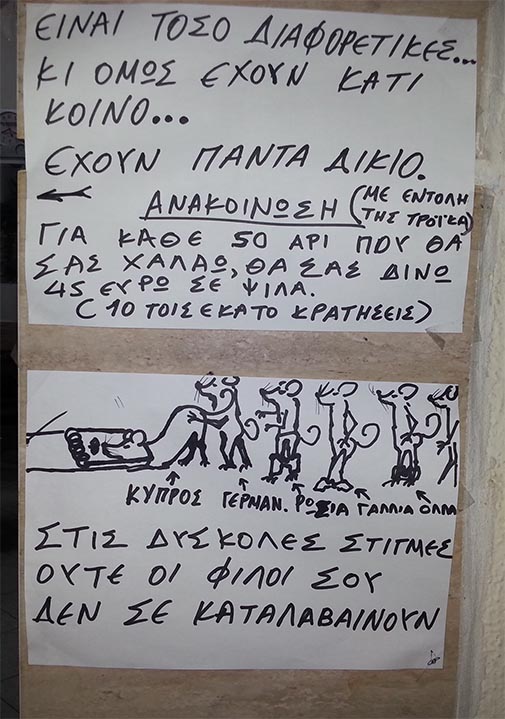 ΕΙΝΑΙ ΤΟΣΟ ΔΙΑΦΟΡΕΤΙΚΕΣ...
ΚΙ ΟΜΩΣ ΕΧΟΥΝ ΚΑΤΙ
ΚΟΙΝΟ...
ΕΧΟΥΝ ΠΑΝΤΑ ΔΙΚΙΟ.
ΑΝΑΚΟΙΝΩΣΗ (ΜΕ ΕΝΤΟΛΗ
ΤΗΣ ΤΡΟΪΚΑ)
ΓΙΑ ΚΑΘΕ 50 ΑΡΙ ΠΟΥ ΘΑ
ΣΑΣ ΧΑΛΑΩ, ΘΑ ΣΑΣ ΔΙΝΩ
45 ΕΥΡΩ ΣΕ ΨΙΛΑ.
(10 ΤΟΙΣ ΕΚΑΤΟ ΚΡΑΤΗΣΕΙΣ)
ΚΥΠΡΟΣ ΓΕΡΜΑΝ. ΡΩΣΙΑ ΓΑΛΛΙΑ ΟΛΛΑ
ΣΤΙΣ ΔΥΣΚΟΛΕΣ ΣΤΙΓΜΕΣ
ΟΥΤΕ ΟΙ ΦΙΛΟΙ ΣΟΥ
ΔΕΝ ΣΕ ΚΑΤΑΛΑΒΑΙΝΟΥΝ